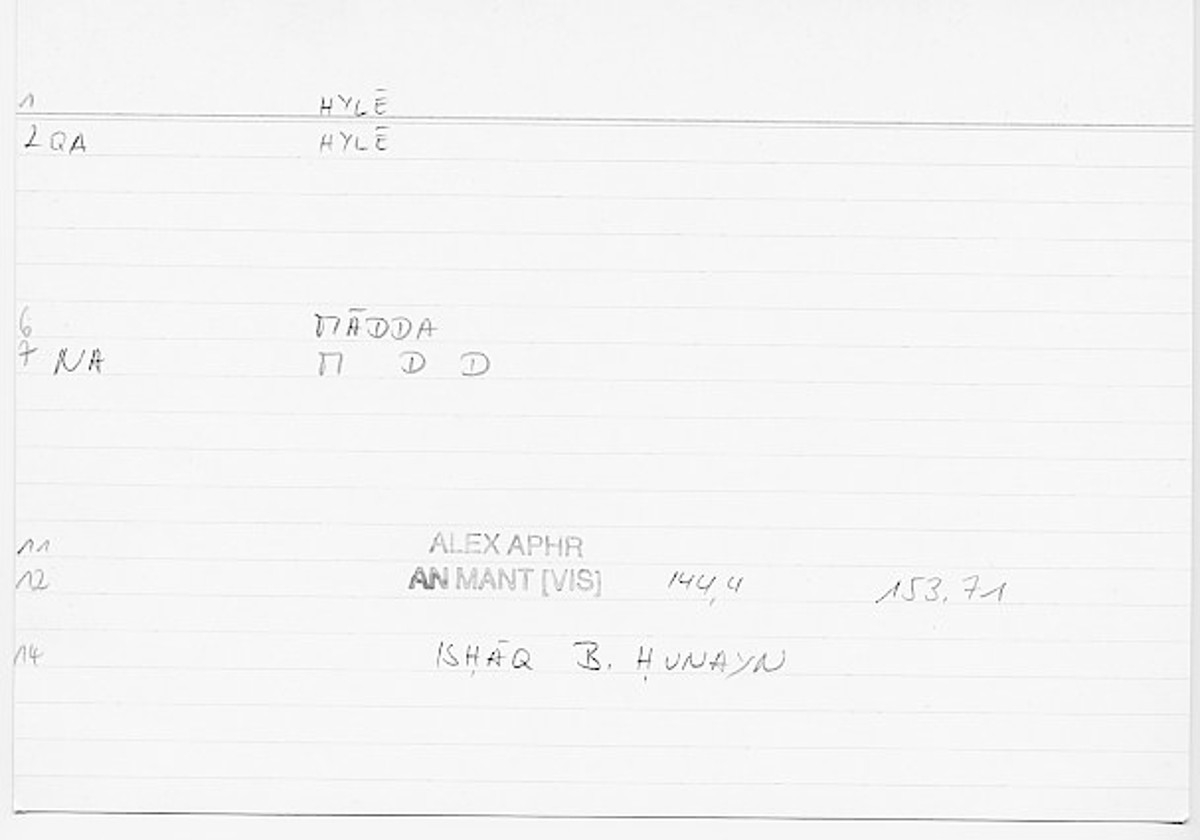 1 HYLĒ
2 QA HYLĒ
6 MĀDDA
7 NA M D D
11 ALEX APHR
12 AN MANT [VIS] 144,4 153.71
14 ISḤĀQ B. ḤUNAYN